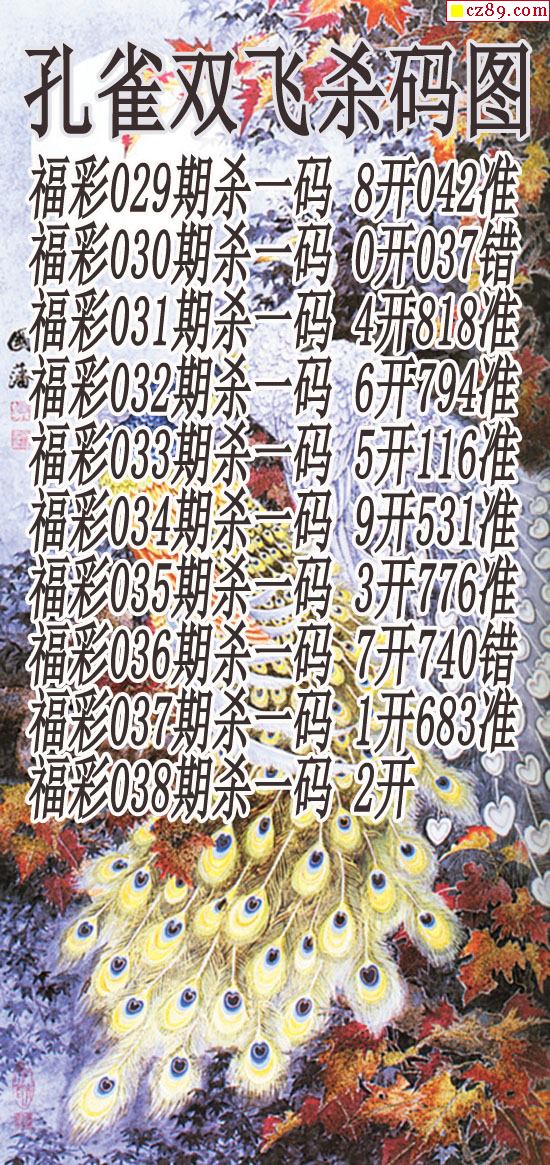 cz89.com
孔雀双飞杀码图
福彩029期杀一码 8开042准
福彩030期杀一码 0开037错
福彩031期杀一码 4开818准
福彩032期杀一码 6开794准
福彩033期杀一码 5开116准
福彩034期杀一码 9开531准
福彩035期杀一码 3开776准
福彩036期杀一码 7开740错
福彩037期杀一码 1开683准
福彩038期杀一码 2开